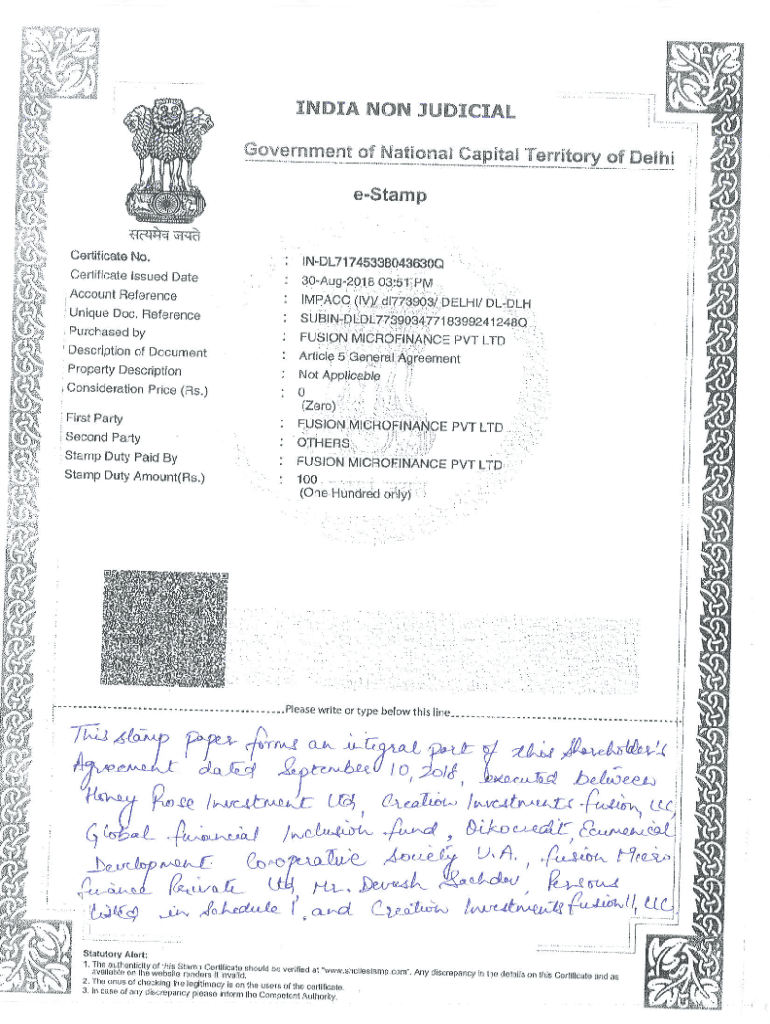 INDIA NON JUDICIAL
Government of National Capital Territory of Delhi
e-Stamp
सत्यमेव जयते
Certificate No. : IN-DL71745338043630Q
Certificate Issued Date : 30-Aug-2018 03:51 PM
Account Reference : IMPACC (IV)/ dl773903/ DELHI/ DL-DLH
Unique Doc. Reference : SUBIN-DLDL77390347718399241248Q
Purchased by : FUSION MICROFINANCE PVT LTD
Description of Document : Article 5 General Agreement
Property Description : Not Applicable
Consideration Price (Rs.) : 0
(Zero)
First Party : FUSION MICROFINANCE PVT LTD
Second Party : OTHERS
Stamp Duty Paid By : FUSION MICROFINANCE PVT LTD
Stamp Duty Amount(Rs.) : 100
(One Hundred only)
Please write or type below this line
This stamp paper forms an integral part of this Shareholder's
Agreement dated September 10, 2018, executed between
Honey Rose Investment Ltd, Creation Investments fusion, LLC,
Global financial Inclusion fund, Oikocredit, Ecumenical
Development Co-operative Society U.A., fusion Micro
finance Private Ltd, Mr. Devesh Sachdev, Persons
listed in Schedule 1, and Creation Investments fusion II, LLC
Statutory Alert:
1. The authenticity of this Stamp Certificate should be verified at "www.shcilestamp.com". Any discrepancy in the details on this Certificate and as
available on the website renders it invalid.
2. The onus of checking the legitimacy is on the users of the certificate.
3. In case of any discrepancy please inform the Competent Authority.